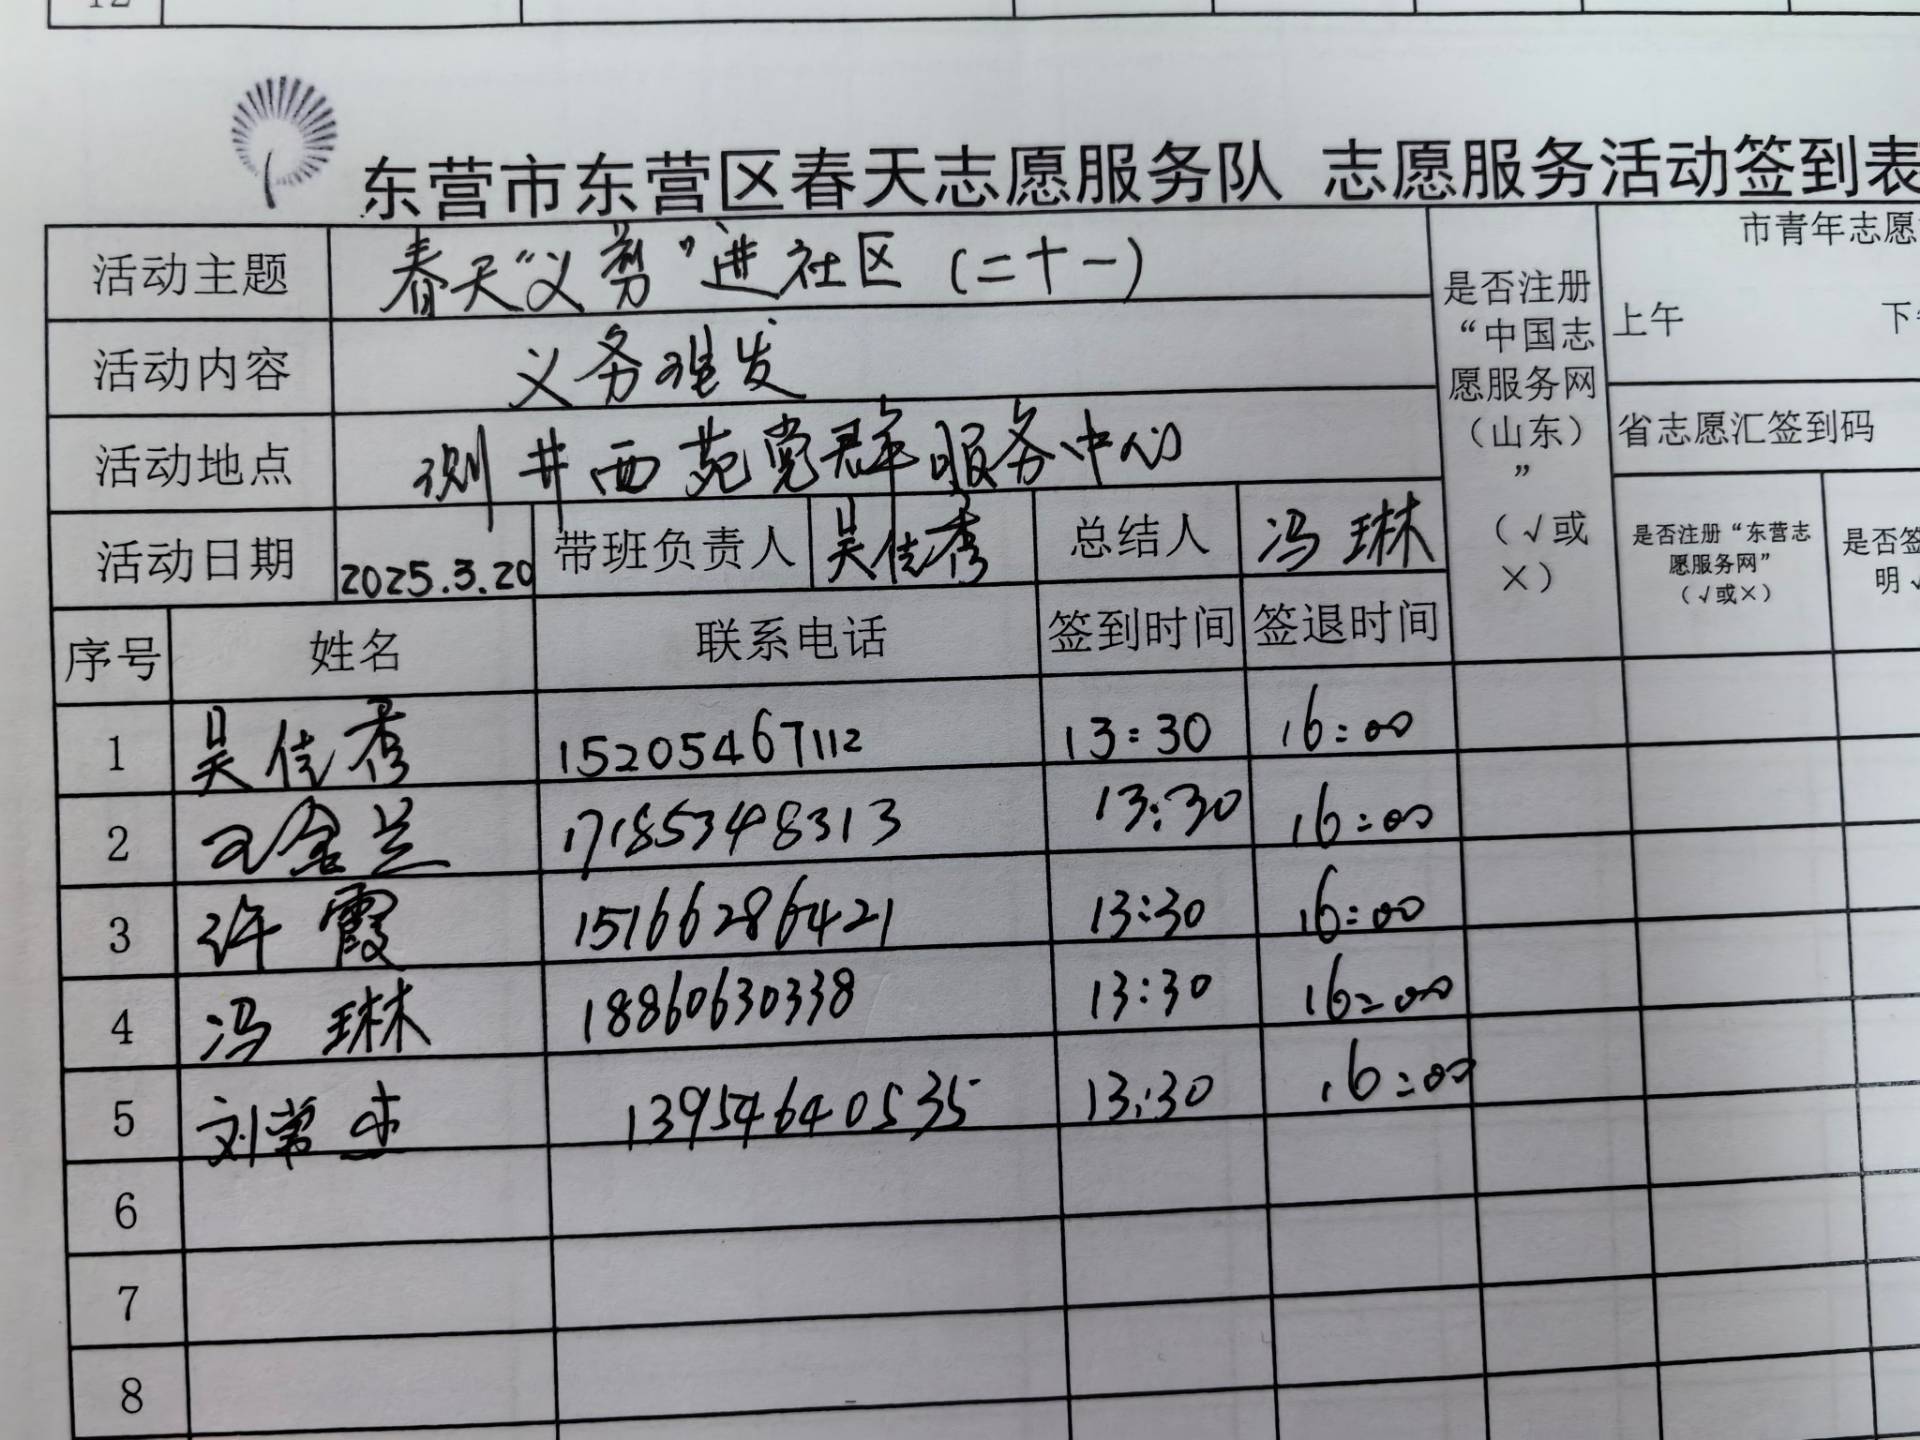 12
东营市东营区春天志愿服务队 志愿服务活动签到表
活动主题 春天“义剪”进社区(二十一)
是否注册“中国志愿服务网（山东）”（√或×）
市青年志愿
上午 下午
活动内容 义务理发
活动地点 测井西苑党群服务中心
省志愿汇签到码
活动日期 2025.3.20 带班负责人 吴佳秀 总结人 冯琳
是否注册“东营志愿服务网”（√或×）
是否签 明√
序号 姓名 联系电话 签到时间 签退时间
1 吴佳秀 15205467112 13:30 16:00
2 王金兰 17185348313 13:30 16:00
3 许霞 15166286421 13:30 16:00
4 冯琳 18860630338 13:30 16:00
5 刘常 13954640535 13:30 16:00
6
7
8